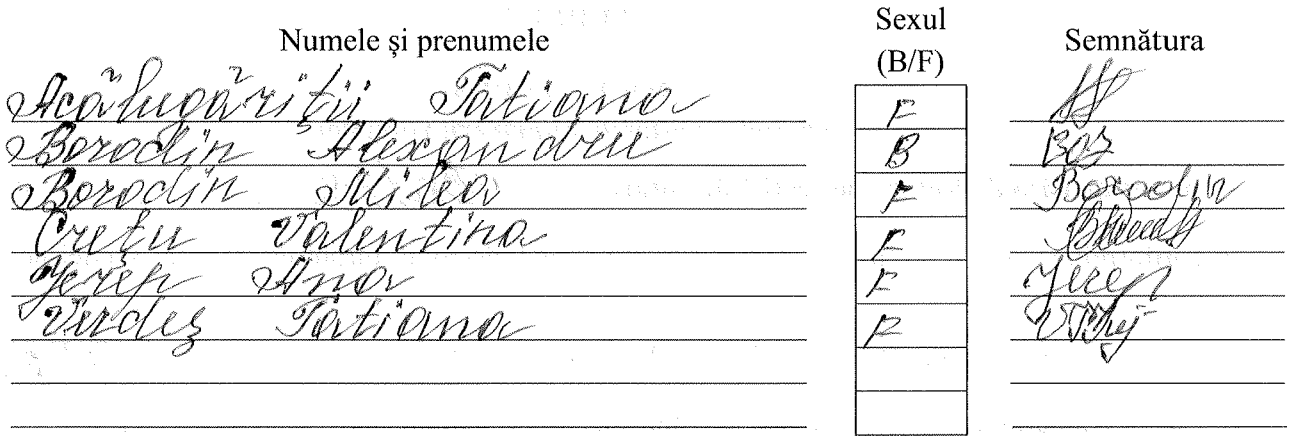 Numele și prenumele Sexul (B/F) Semnătura
Acălugăriții Tatiana F
Borodin Alexandru B Bor
Borodin Milea F Borodin
Crețu Valentina F
Jerep Ana F Jerep
Verdeș Tatiana F